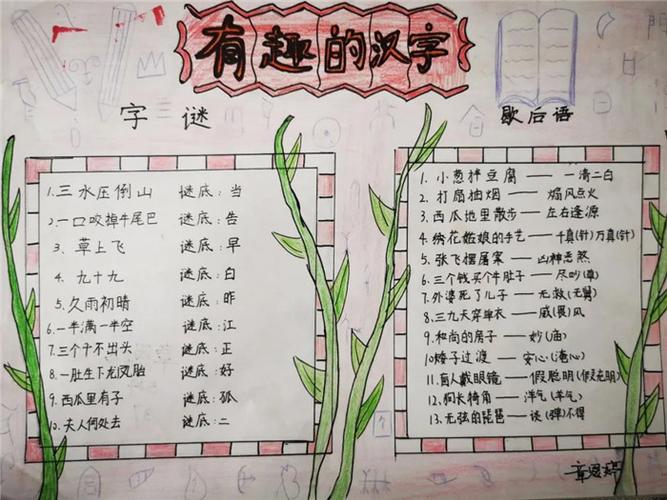 有趣的汉字
字谜
1.三水压倒山 谜底:当
2.一口咬掉牛尾巴 谜底:告
3.草上飞 谜底:早
4.九十九 谜底:白
5.久雨初晴 谜底:昨
6.一半满一半空 谜底:江
7.三个十不出头 谜底:正
8.一肚生下龙凤胎 谜底:好
9.西瓜里有子 谜底:孤
10.夫人何处去 谜底:二
歇后语
1.小葱拌豆腐——一清二白
2.打扇抽烟——煽风点火
3.西瓜地里散步——左右逢源
4.绣花姑娘的手艺——千真(针)万真(针)
5.张飞摆屠案——凶神恶煞
6.三个钱买个牛肚子——尽吵(草)
7.外婆死了儿子——无救(无舅)
8.三九天穿单衣——威(畏)风
9.和尚的房子——妙(庙)
10矮子过渡——安心(淹心)
11.盲人戴眼镜——假聪明(假充明)
12.狗长犄角——洋气(羊气)
13.无弦的琵琶——谈(弹)不得